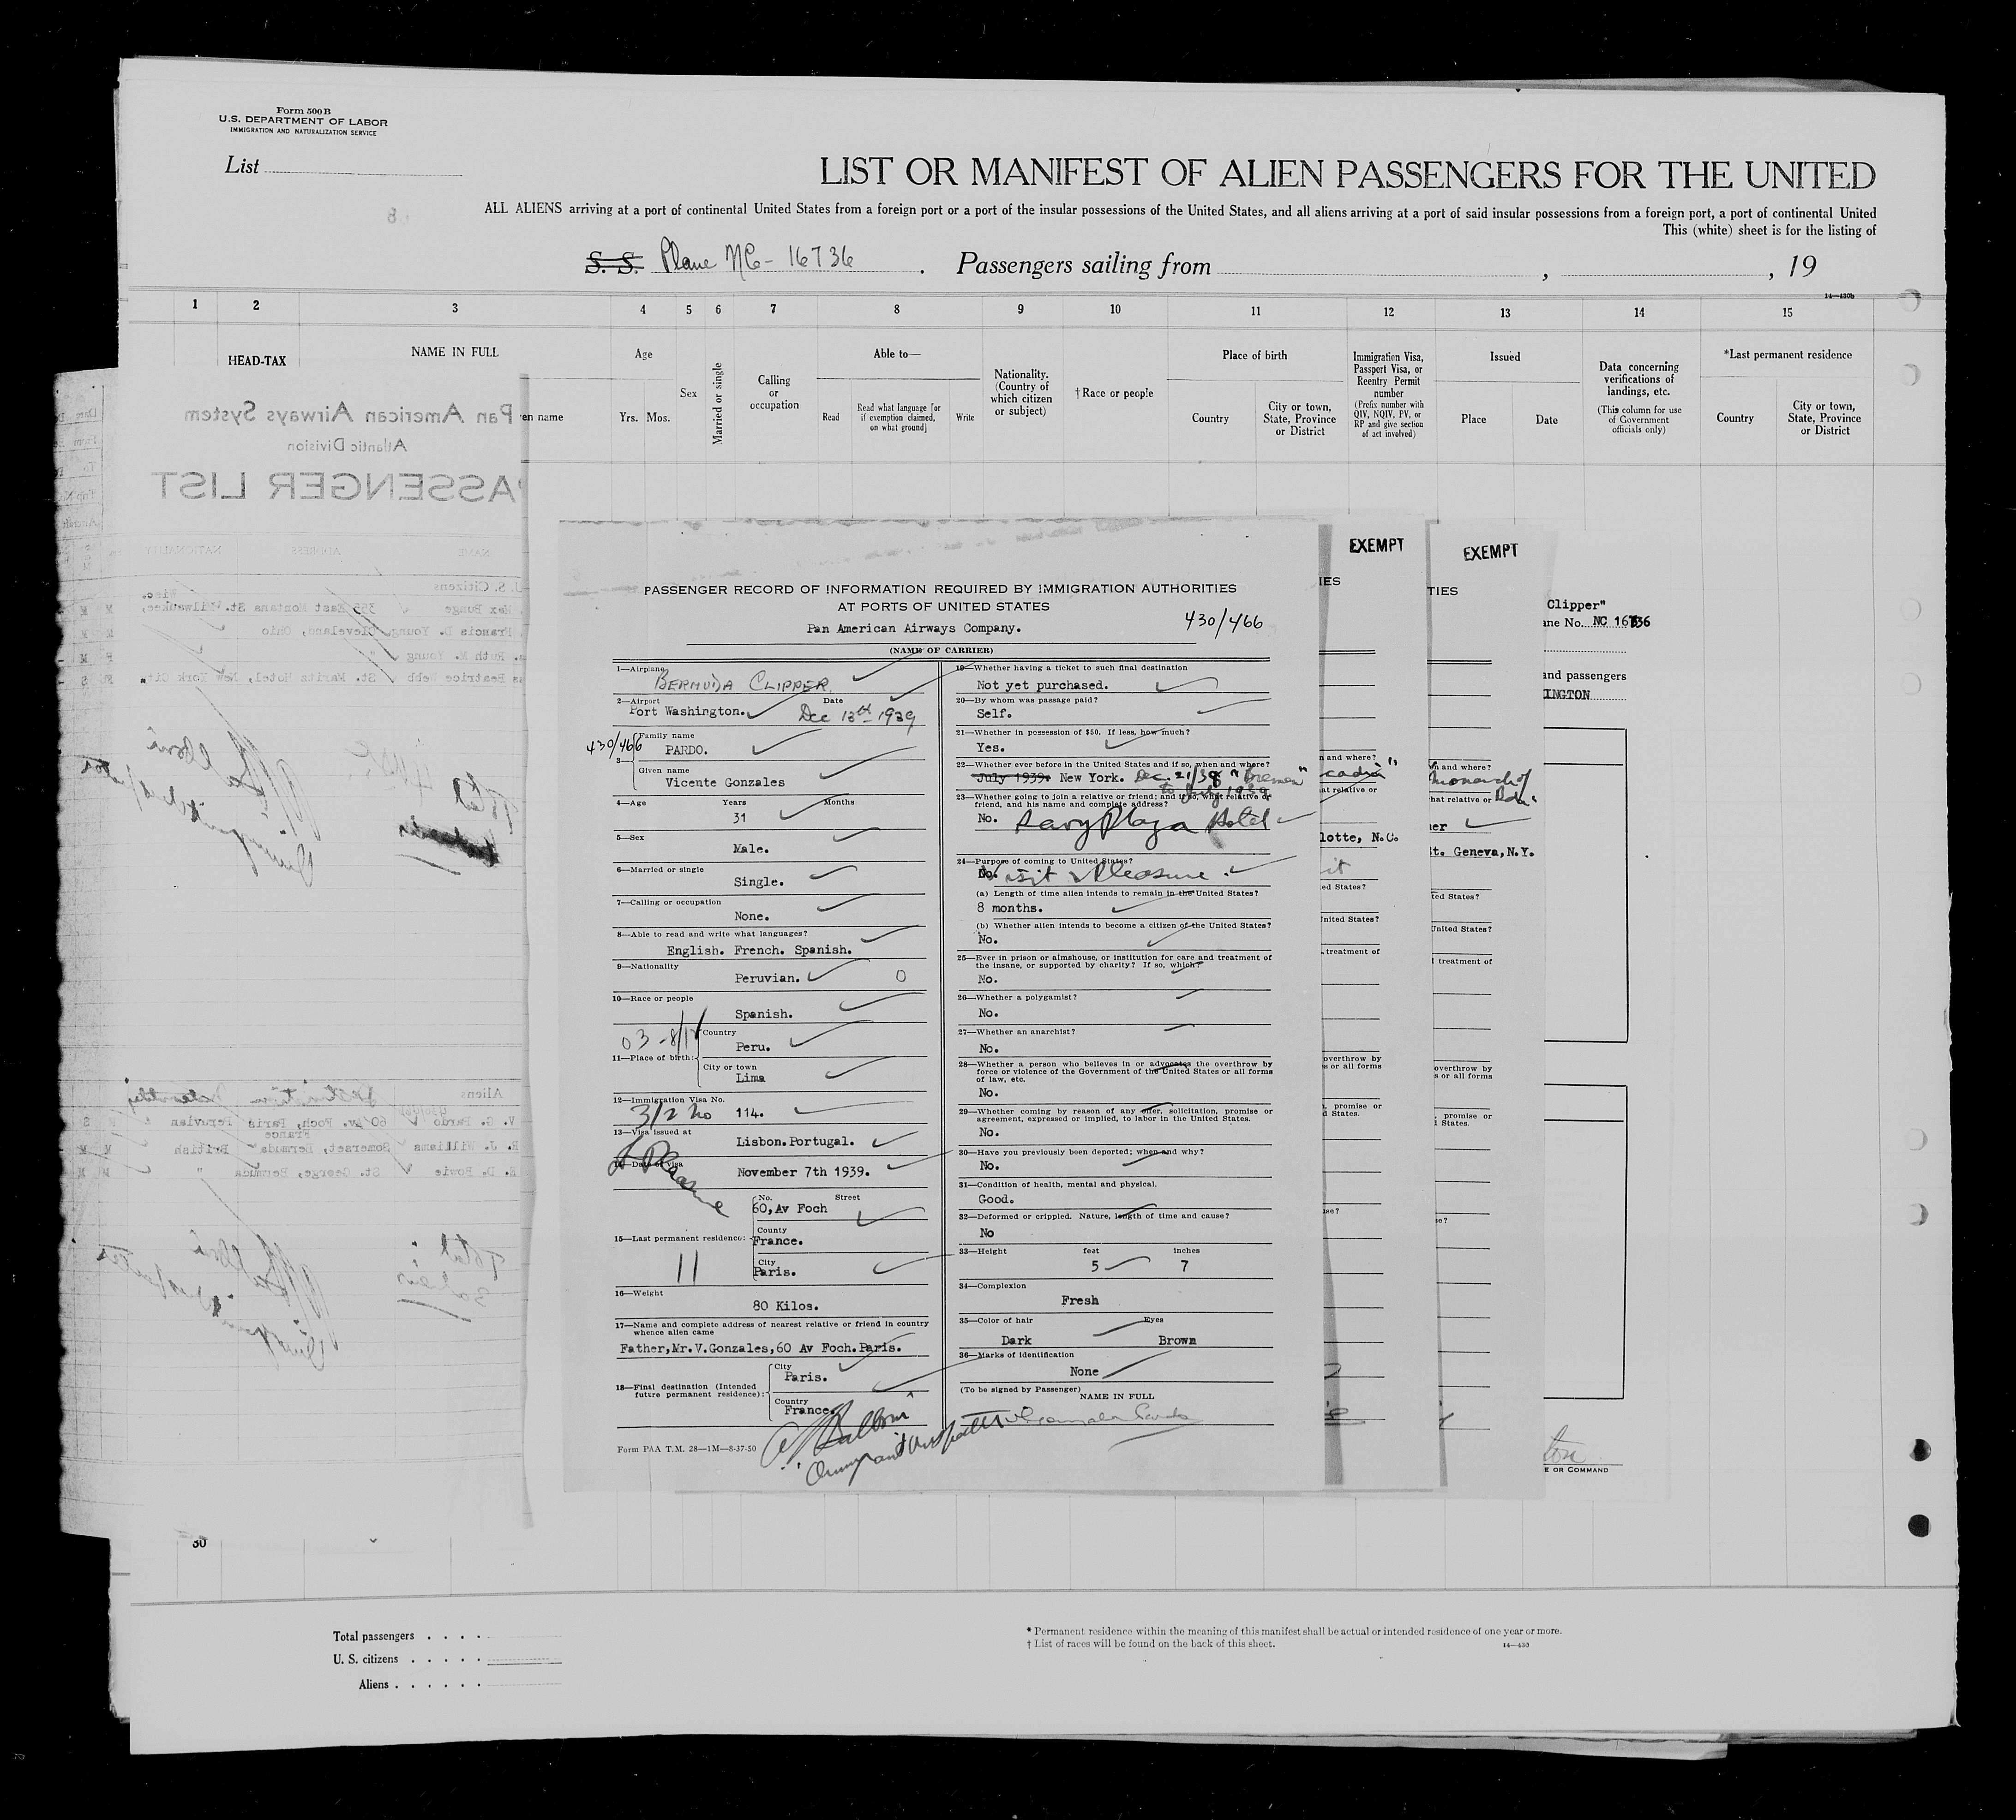 Form 500 B
U.S. DEPARTMENT OF LABOR
IMMIGRATION AND NATURALIZATION SERVICE
List
LIST OR MANIFEST OF ALIEN PASSENGERS FOR THE UNITED
ALL ALIENS arriving at a port of continental United States from a foreign port or a port of the insular possessions of the United States, and all aliens arriving at a port of said insular possessions from a foreign port, a port of continental United
This (white) sheet is for the listing of
S. S. Plane NC-16736. Passengers sailing from , , 19
14—430b
1 2 3 4 5 6 7 8 9 10 11 12 13 14 15
HEAD-TAX
NAME IN FULL
en name
Age
Yrs. Mos.
Sex
Married or single
Calling
or
occupation
Able to—
Read
Read what language [or
if exemption claimed,
on what ground]
Write
Nationality.
(Country of
which citizen
or subject)
†Race or people
Place of birth
Country
City or town,
State, Province
or District
Immigration Visa,
Passport Visa, or
Reentry Permit
number
(Prefix number with
QIV, NQIV, PV, or
RP and give section
of act involved)
Issued
Place
Date
Data concerning
verifications of
landings, etc.
(This column for use
of Government
officials only)
*Last permanent residence
Country
City or town,
State, Province
or District
Pan American Airways System
Atlantic Division
PASSENGER LIST
NAME ADDRESS NATIONALITY
U. S. Citizens
Rex Bunge 355 East Montana St. Milwaukee, Wisc.
Francis D. Young Cleveland, Ohio
Ruth M. Young "
Beatrice Webb St. Moritz Hotel, New York City
Aliens
V. G. Pardo 60 Av. Foch, Paris France Peruvian
E. J. Williams Somerset, Bermuda British
E. D. Bowie St. George, Bermuda "
PASSENGER RECORD OF INFORMATION REQUIRED BY IMMIGRATION AUTHORITIES
AT PORTS OF UNITED STATES
430/466
Pan American Airways Company.
(NAME OF CARRIER)
1—Airplane
BERMUDA CLIPPER
2—Airport Date
Port Washington. Dec 13th 1939
430/466
3— Family name
PARDO.
Given name
Vicente Gonzales
4—Age Years Months
31
5—Sex
Male.
6—Married or single
Single.
7—Calling or occupation
None.
8—Able to read and write what languages?
English. French. Spanish.
9—Nationality
Peruvian. 0
10—Race or people
Spanish.
11—Place of birth: Country
Peru.
City or town
Lima
12—Immigration Visa No.
3/2 No 114.
13—Visa issued at
Lisbon.Portugal.
14—Date of visa
November 7th 1939.
Pleasure
No. Street
60, Av Foch
15—Last permanent residence: County
France.
11
City
Paris.
16—Weight
80 Kilos.
17—Name and complete address of nearest relative or friend in country
whence alien came
Father,Mr.V.Gonzales,60 Av Foch.Paris.
18—Final destination (Intended
future permanent residence):
City
Paris.
Country
France.
Form PAA T.M. 28—1M—8-37-50
19—Whether having a ticket to such final destination
Not yet purchased.
20—By whom was passage paid?
Self.
21—Whether in possession of $50. If less, how much?
Yes.
22—Whether ever before in the United States and if so, when and where?
July 1939. New York. Dec. 21/38 "Bremen"
to July 1939
23—Whether going to join a relative or friend; and if so, what relative or
friend, and his name and complete address?
No. Savoy Plaza Hotel
24—Purpose of coming to United States?
No. Visit Pleasure.
(a) Length of time alien intends to remain in the United States?
8 months.
(b) Whether alien intends to become a citizen of the United States?
No.
25—Ever in prison or almshouse, or institution for care and treatment of
the insane, or supported by charity? If so, which?
No.
26—Whether a polygamist?
No.
27—Whether an anarchist?
No.
28—Whether a person who believes in or advocates the overthrow by
force or violence of the Government of the United States or all forms
of law, etc.
No.
29—Whether coming by reason of any offer, solicitation, promise or
agreement, expressed or implied, to labor in the United States.
No.
30—Have you previously been deported; when and why?
No.
31—Condition of health, mental and physical.
Good.
32—Deformed or crippled. Nature, length of time and cause?
No
33—Height feet inches
5 7
34—Complexion
Fresh
35—Color of hair Eyes
Dark Brown
36—Marks of identification
None
(To be signed by Passenger)
NAME IN FULL
EXEMPT
EXEMPT
IES
TIES
Clipper"
ane No. NC 16736
and passengers
INGTON
n and where?
n and where?
Monarch of
hat relative or
lotte, N.C.
St. Geneva, N.Y.
ed States?
United States?
treatment of
overthrow by
s or all forms
promise or
d States.
E OR COMMAND
30
Total passengers
U. S. citizens
Aliens
* Permanent residence within the meaning of this manifest shall be actual or intended residence of one year or more.
† List of races will be found on the back of this sheet.
14—430